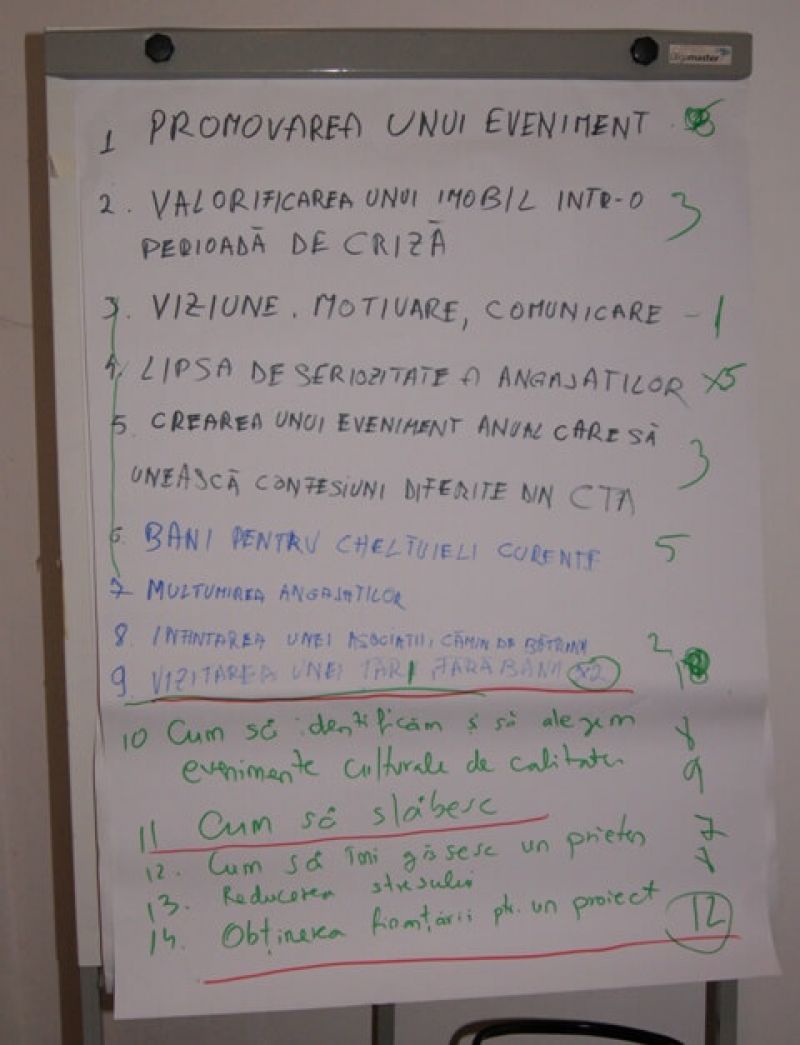 1 PROMOVAREA UNUI EVENIMENT
2. VALORIFICAREA UNUI IMOBIL INTR-O 3
PERIOADĂ DE CRIZĂ
3. VIZIUNE. MOTIVARE, COMUNICARE - 1
4. LIPSA DE SERIOZITATE A ANGAJATILOR x5
5. CREAREA UNUI EVENIMENT ANUAL CARE SĂ
UNEASCĂ CONFESIUNI DIFERITE DIN CTA 3
6. BANI PENTRU CHELTUIELI CURENTE 5
7 MULTUMIREA ANGAJATILOR
8. INFINTAREA UNEI ASOCIATII, CĂMIN DE BĂTRINI 2
9. VIZITAREA UNEI TĂRI FĂRĂ BANI x2
10 Cum să identificăm și să alegem
evenimente culturale de calitate 9
11 Cum să slăbesc
12. Cum să îmi găsesc un prieten 7
13. Reducerea stresului
14. Obținerea finanțării ptr. un proiect 12